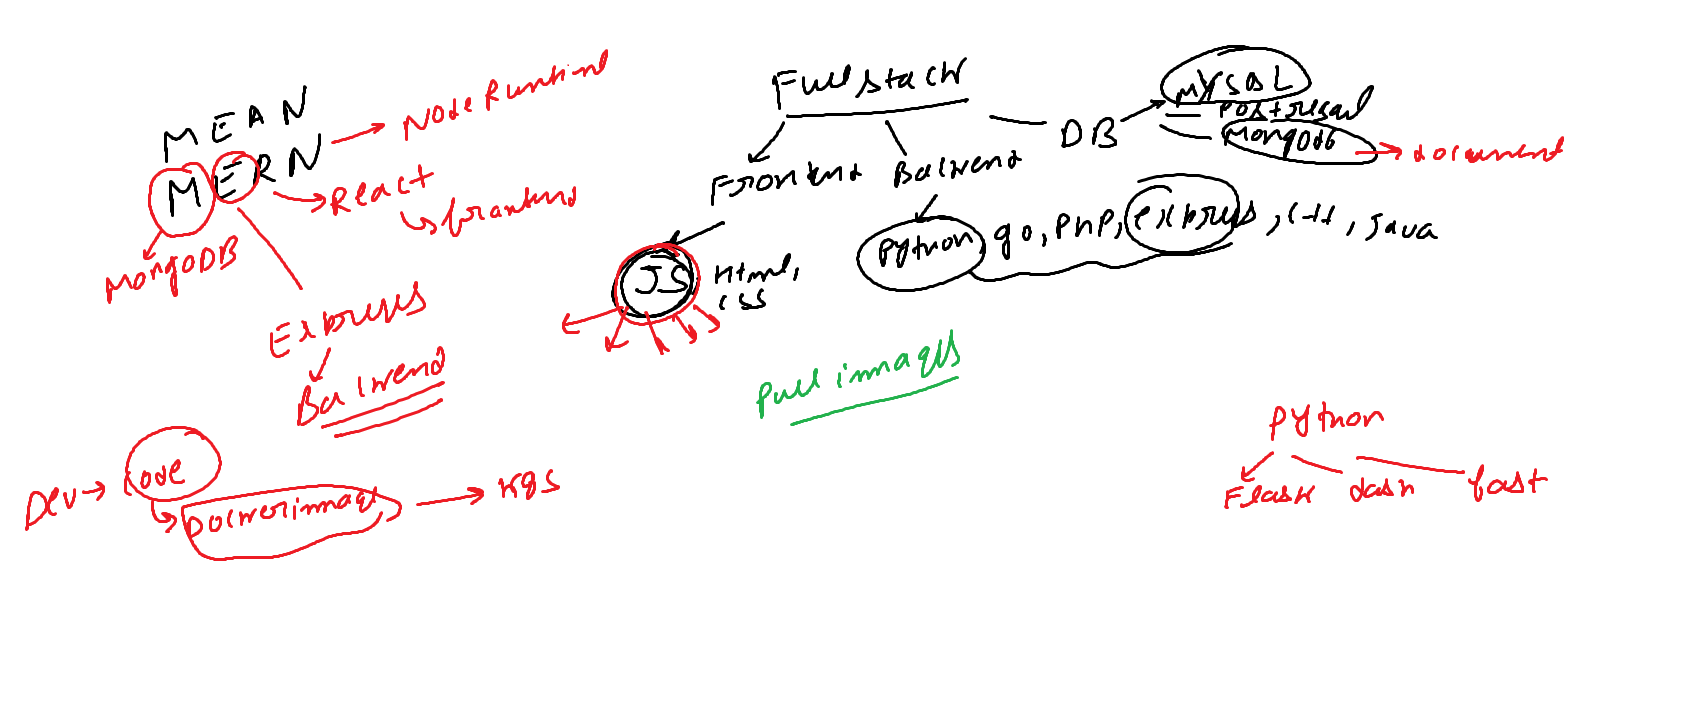 MEAN
MERN
Node Runtime
React
frontend
MongoDB
Express
Backend
Dev → Code
Docker image → K8s
Full stack
Frontend Backend DB
MYSQL
Postresql
MongoDb → document
JS Html,
CSS
Python, go, PHP, express, C++, Java
Pull images
Python
Flask dash fast